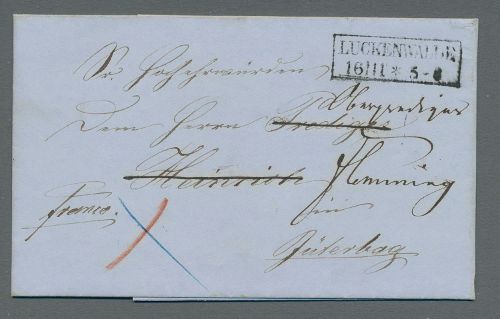 LUCKENWALDE
16/11 * 5-6
Sr. Hochehrwürden
Dem Herrn Prediger Oberprediger
Heinrich Henning
in
franco.
Jüterbog